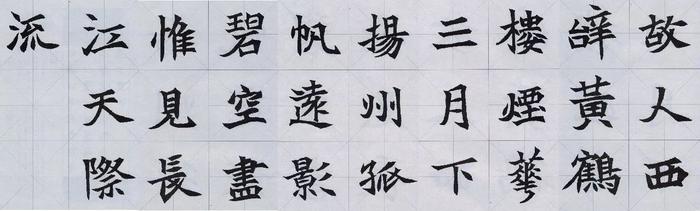 故人西
辞黃鶴
樓煙華
三月下
揚州孤
帆遠影
碧空盡
惟見長
江天際
流